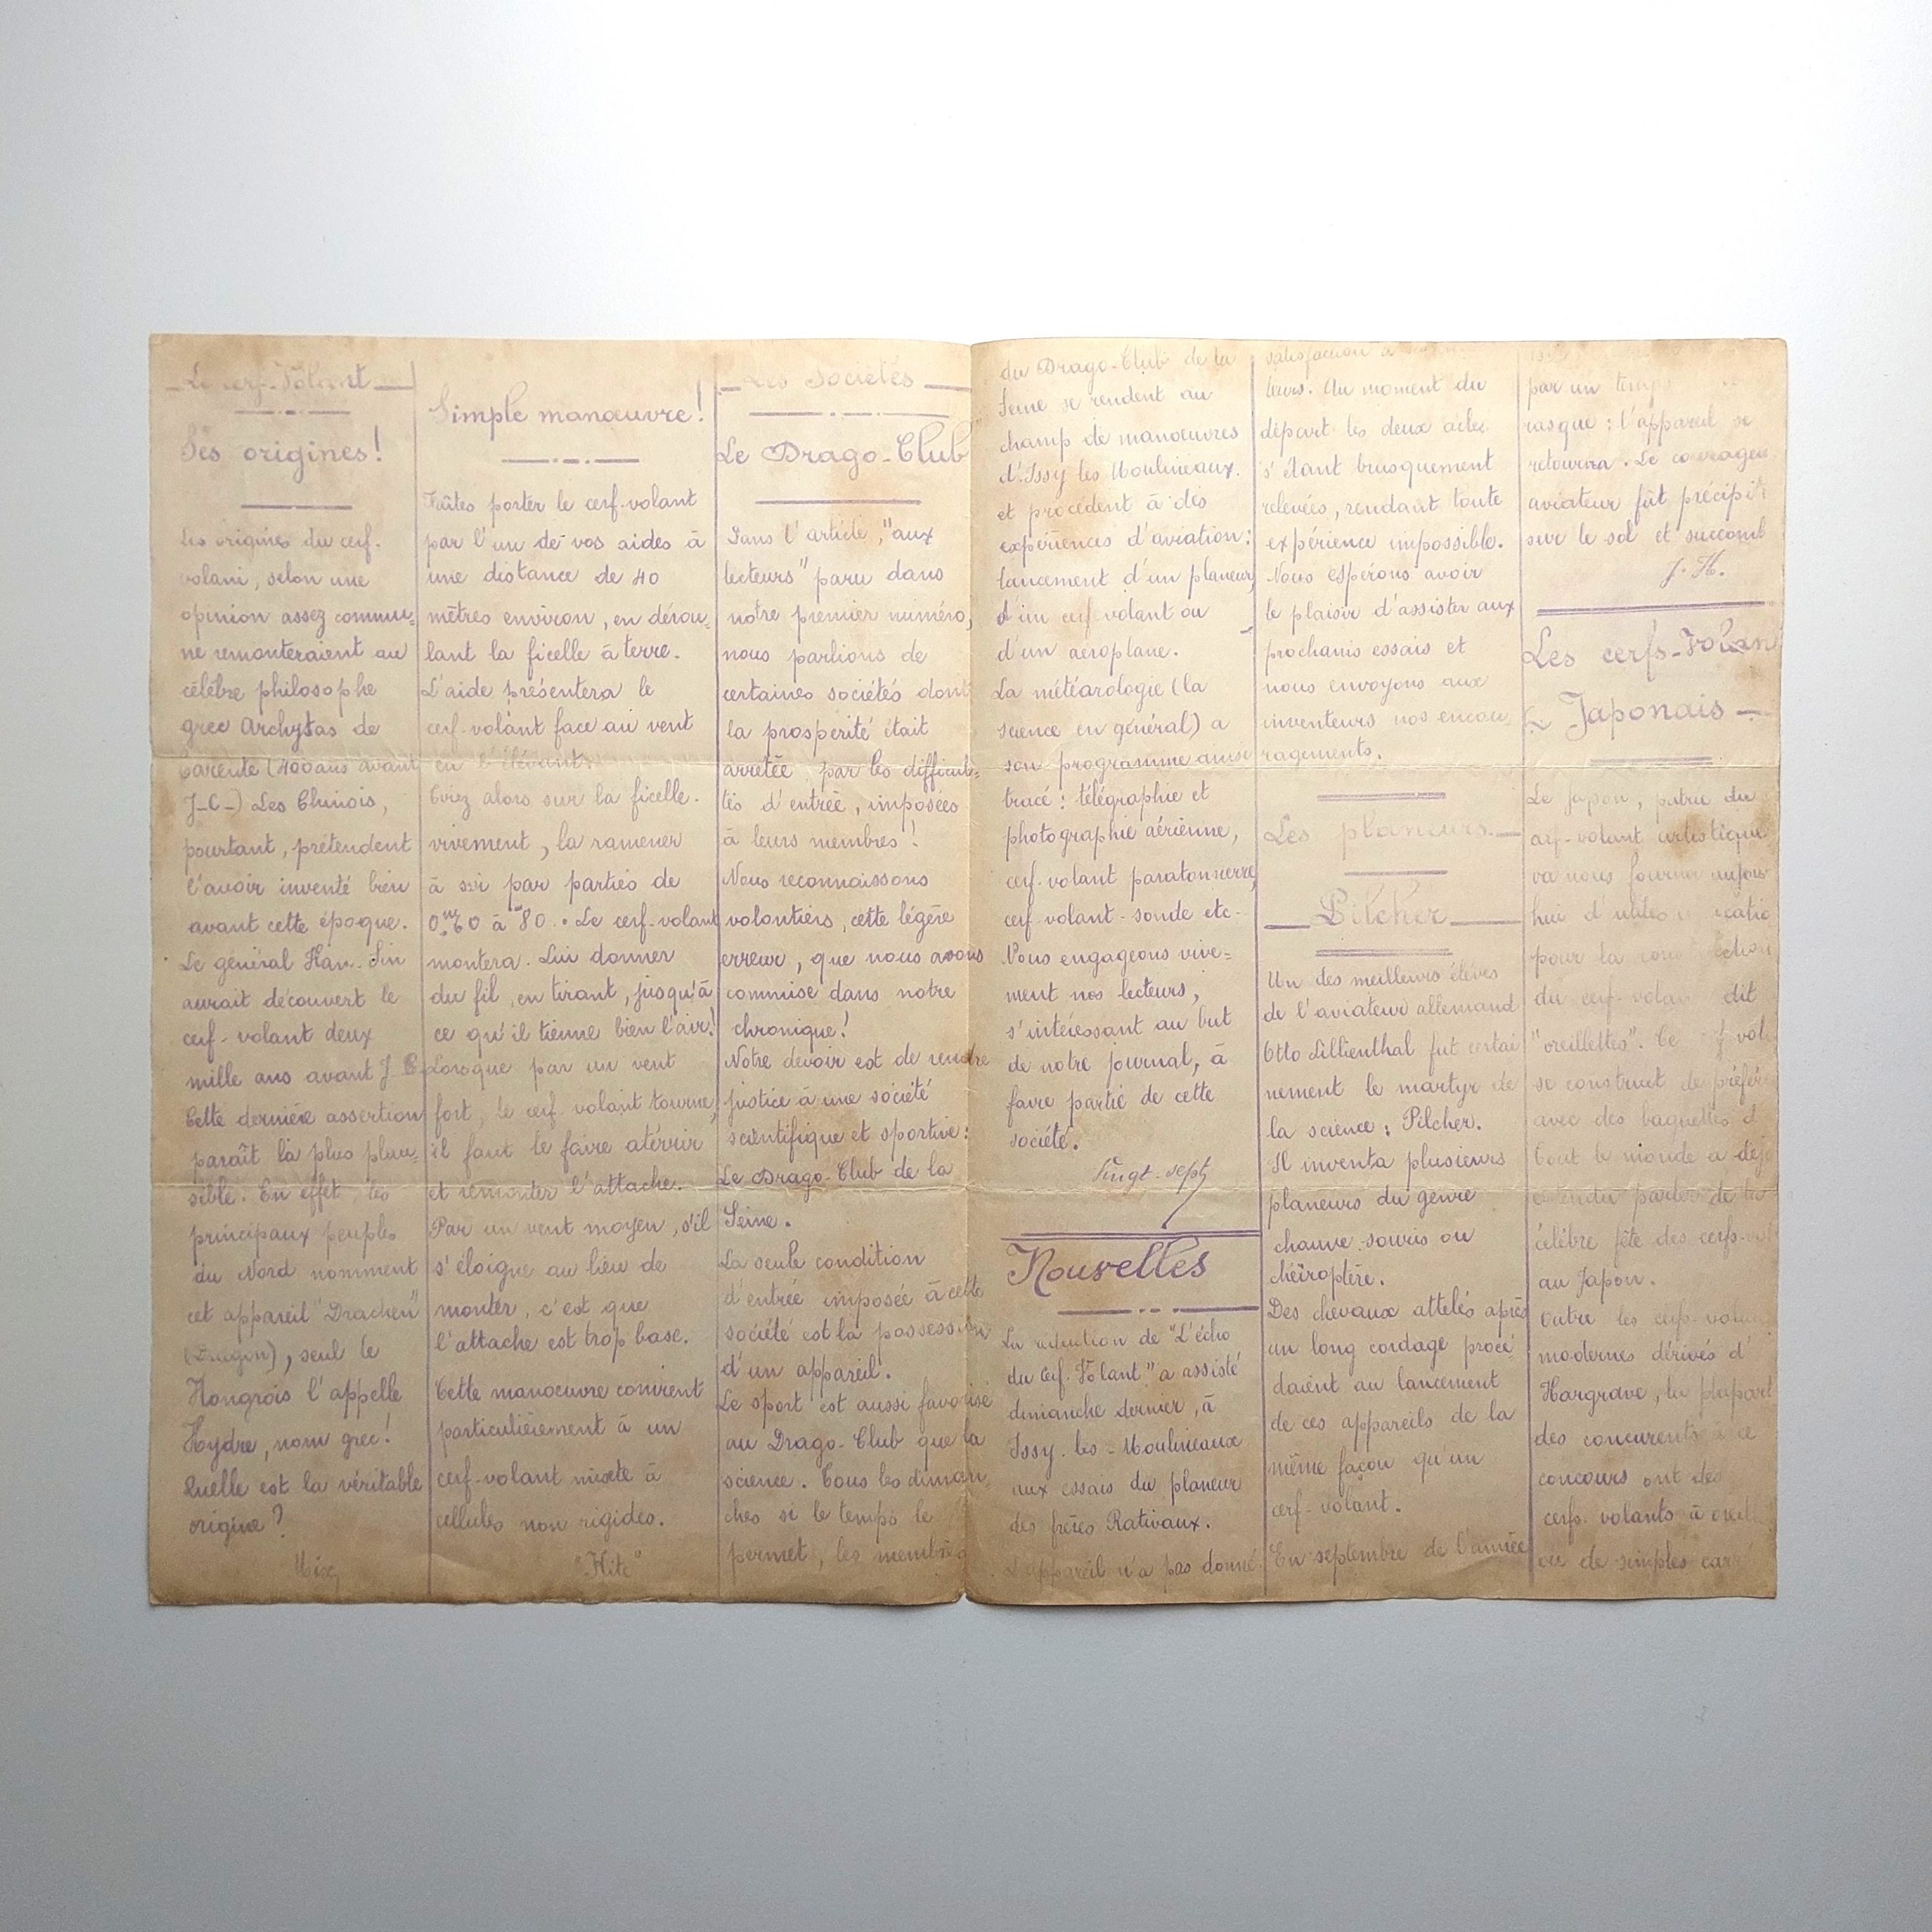 Le cerf-Volant
Ses origines!
Les origines du cerf-
volant, selon une
opinion assez commu=
ne remonteraient au
célèbre philosophe
grec Archytas de
Tarente (400 ans avant
J-C-) Les Chinois,
pourtant, prétendent
l'avoir inventé bien
avant cette époque.
Le général Han-Sin
aurait découvert le
cerf-volant deux
mille ans avant J-C.
Cette dernière assertion
paraît la plus plau=
sible. En effet, les
principaux peuples
du Nord nomment
cet appareil "Drachen"
(Dragon), seul le
Hongrois l'appelle
Hydre, nom grec!
Quelle est la véritable
origine?
Simple manœuvre!
Faites porter le cerf-volant
par l'un de vos aides à
une distance de 40
mètres environ, en dérou=
lant la ficelle à terre.
L'aide présentera le
cerf-volant face au vent
en l'élevant.
Tirez alors sur la ficelle.
vivement, la ramener
à soi par parties de
0m,60 à m80. Le cerf-volant
montera. Lui donner
du fil, en tirant, jusqu'à
ce qu'il tienne bien l'air!
Lorsque par un vent
fort, le cerf-volant tourne,
il faut le faire atérrir
et remonter l'attache.
Par un vent moyen, s'il
s'éloigne au lieu de
monter, c'est que
l'attache est trop base.
Cette manoeuvre convient
particulièrement à un
cerf-volant mixte à
cellules non rigides.
"Kite"
Les Sociétés
Le Drago-Club
Dans l'article, "aux
lecteurs" paru dans
notre premier numéro,
nous parlions de
certaines sociétés dont
la prospérité était
arretée par les difficul=
tés d'entrée, imposées
à leurs membres!
Nous reconnaissons
volontiers, cette légère
erreur, que nous avons
commise dans notre
chronique!
Notre devoir est de rendre
justice à une société
scientifique et sportive:
Le Drago-Club de la
Seine.
La seule condition
d'entrée imposée à cette
société est la possession
d'un appareil.
Le sport est aussi favorisé
au Drago-Club que la
science. Tous les diman-
ches si le temps le
permet, les membres
du Drago-Club de la
Seine se rendent au
champ de manœuvres
d'Issy les Moulineaux.
et procèdent à des
expériences d'aviation:
lancement d'un planeur,
d'un cerf volant ou
d'un aéroplane.
La météorologie (la
science en général) a
son programme ainsi
tracé: télégraphie et
photographie aérienne,
cerf-volant paratonnerre,
cerf-volant-sonde etc-
Nous engageons vive=
ment nos lecteurs,
s'intéressant au but
de notre journal, à
faire partie de cette
société.
Vingt-sept
Nouvelles
La rédaction de "L'écho
du Cerf-Volant" a assisté
dimanche dernier, à
Issy-les-Moulineaux
aux essais du planeur
des frères Rativaux.
L'appareil n'a pas donné
satisfaction à
teurs. Au moment du
départ les deux ailes
s'étant brusquement
relevées, rendant toute
expérience impossible.
Nous espérons avoir
le plaisir d'assister aux
prochains essais et
nous envoyons aux
inventeurs nos encou
ragements.
Les planeurs
Pilcher
Un des meilleurs élèves
de l'aviateur allemand
Otto Lillienthal fut certai
nement le martyr de
la science: Pilcher.
Il inventa plusieurs
planeurs du genre
chauve-souris ou
chéiroptère.
Des chevaux attelés après
un long cordage procé
daient au lancement
de ces appareils de la
même façon qu'un
cerf-volant.
En septembre de l'année
par un temps
rasque: l'appareil se
retourna. Le courageu
aviateur fut précipit
sur le sol et succomb
J. H.
Les cerfs-Volan
Japonais
Le Japon, patrie du
cerf-volant artistique
va nous fournir aujour
hui d'utiles
pour la construction
du cerf-volant dit
"oreillettes". Ce cerf vol
se construit de préfér
avec des baguettes d
Tout le monde a déjà
entendu parler de la
célèbre fête des cerfs-vol
au Japon.
Outre les cerfs-volan
modernes dérivés d'
Hargrave, la plupart
des concurents à ce
concours ont des
cerfs-volants à oreill
ou de simples car